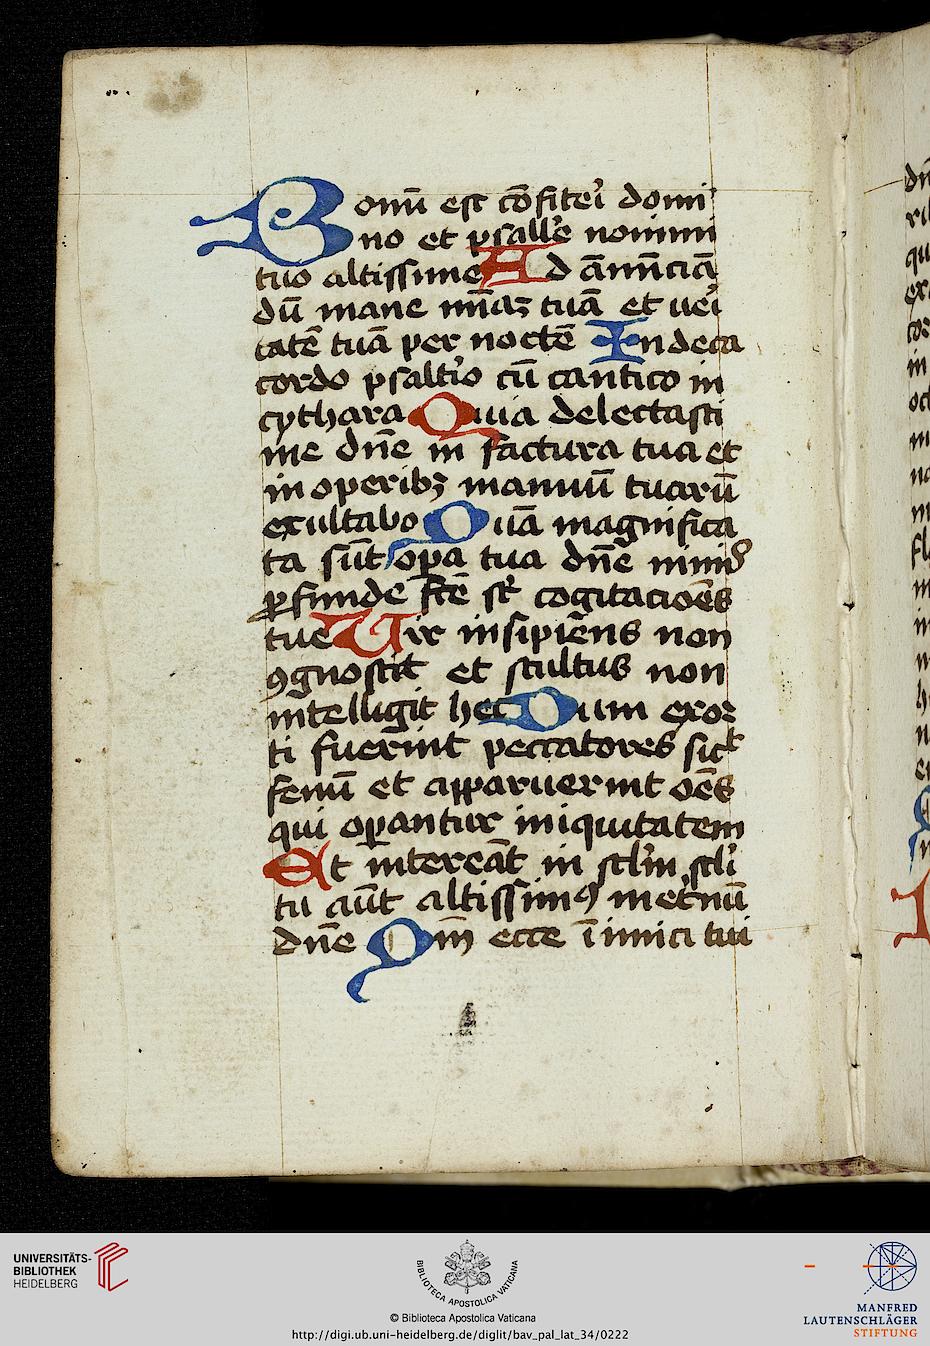 Bonū est cōfite᷑i domi
no et psalle᷑e nomini
tuo altissime Ad ānūciā
dū mane mīaꝫ tuā et ue᷑i
tatē tuā per noctē In deca
cordo psalt᷑io cū cantico in
cythara Quia delectasti
me dn̄e in factura tua et
in operibꝫ manuū tuarū
exultabo Quā magnifica
ta sūt opa tua dn̄e nimis
ꝓfunde fcē st̄ cogitacioēs
tue Uir insipiēns non
ꝯgnoscit et stultus non
intelligit hec Cum exor
ti fuerint peccatores sict
fenū et apparuerint oēs
qui opantur iniquitatem
Ut intereāt in sc̄lm sc̄li
tu aūt altissimꝰ in et᷑nū
dn̄e Qm̄ ecce īimici tui
UNIVERSITÄTS-
BIBLIOTHEK
HEIDELBERG
BIBLIOTECA APOSTOLICA VATICANA
© Biblioteca Apostolica Vaticana
http://digi.ub.uni-heidelberg.de/diglit/bav_pal_lat_34/0222
MANFRED
LAUTENSCHLÄGER
STIFTUNG